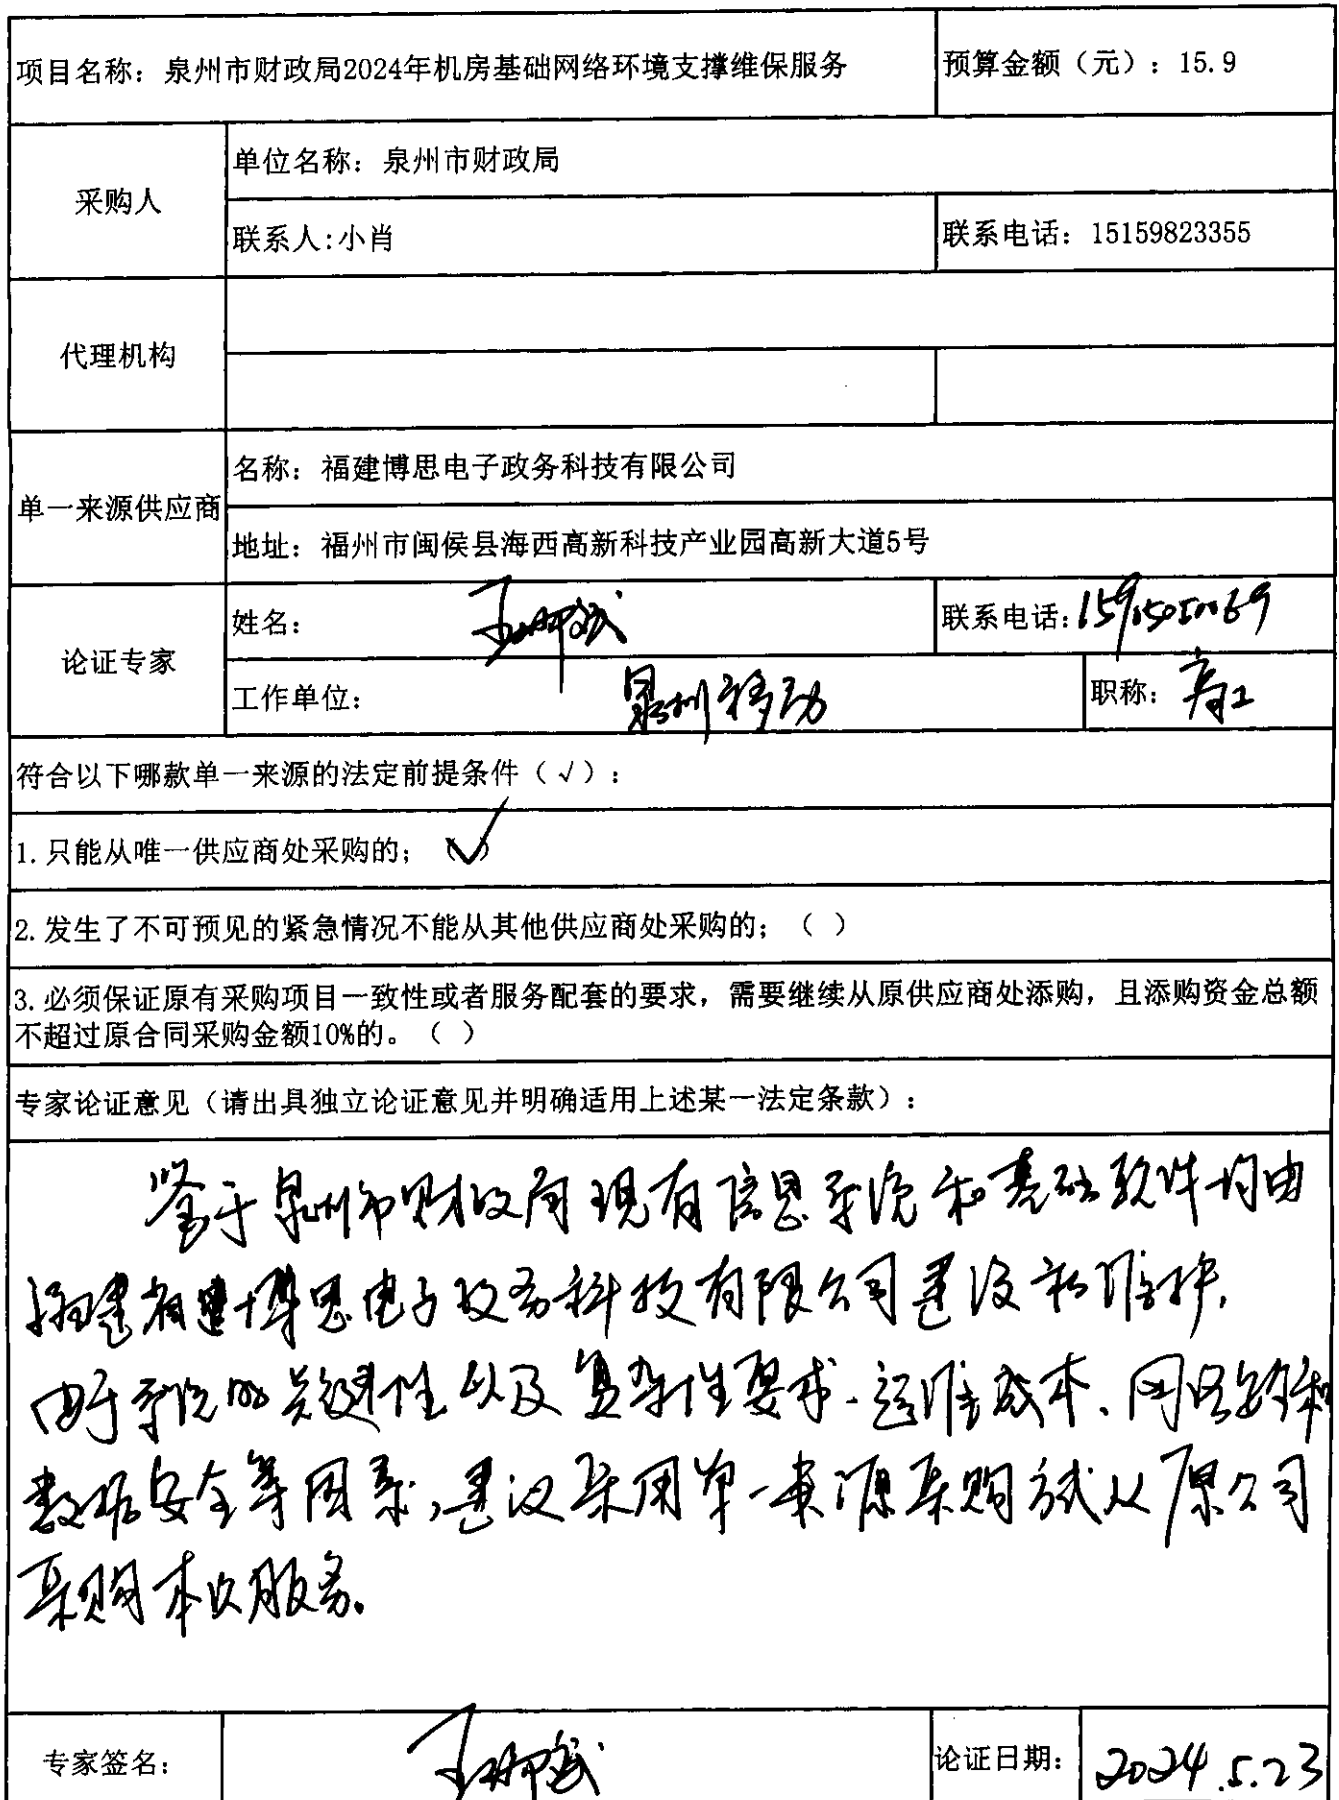 项目名称：泉州市财政局2024年机房基础网络环境支撑维保服务
预算金额（元）：15.9
采购人
单位名称：泉州市财政局
联系人:小肖
联系电话：15159823355
代理机构
单一来源供应商
名称：福建博思电子政务科技有限公司
地址：福州市闽侯县海西高新科技产业园高新大道5号
论证专家
姓名：
联系电话：
工作单位：泉州移动
职称：高工
符合以下哪款单一来源的法定前提条件（√）：
1.只能从唯一供应商处采购的；（√）
2.发生了不可预见的紧急情况不能从其他供应商处采购的；（ ）
3.必须保证原有采购项目一致性或者服务配套的要求，需要继续从原供应商处添购，且添购资金总额
不超过原合同采购金额10%的。（ ）
专家论证意见（请出具独立论证意见并明确适用上述某一法定条款）：
鉴于泉州市财政局现有信息系统和基础软件均由
福建博思电子政务科技有限公司建设和维护，
由于系统的关键性以及复杂性要求、运维成本、网络安全和
数据安全等因素，建议采用单一来源采购方式从原公司
采购本次服务。
专家签名：
论证日期：2024.5.23